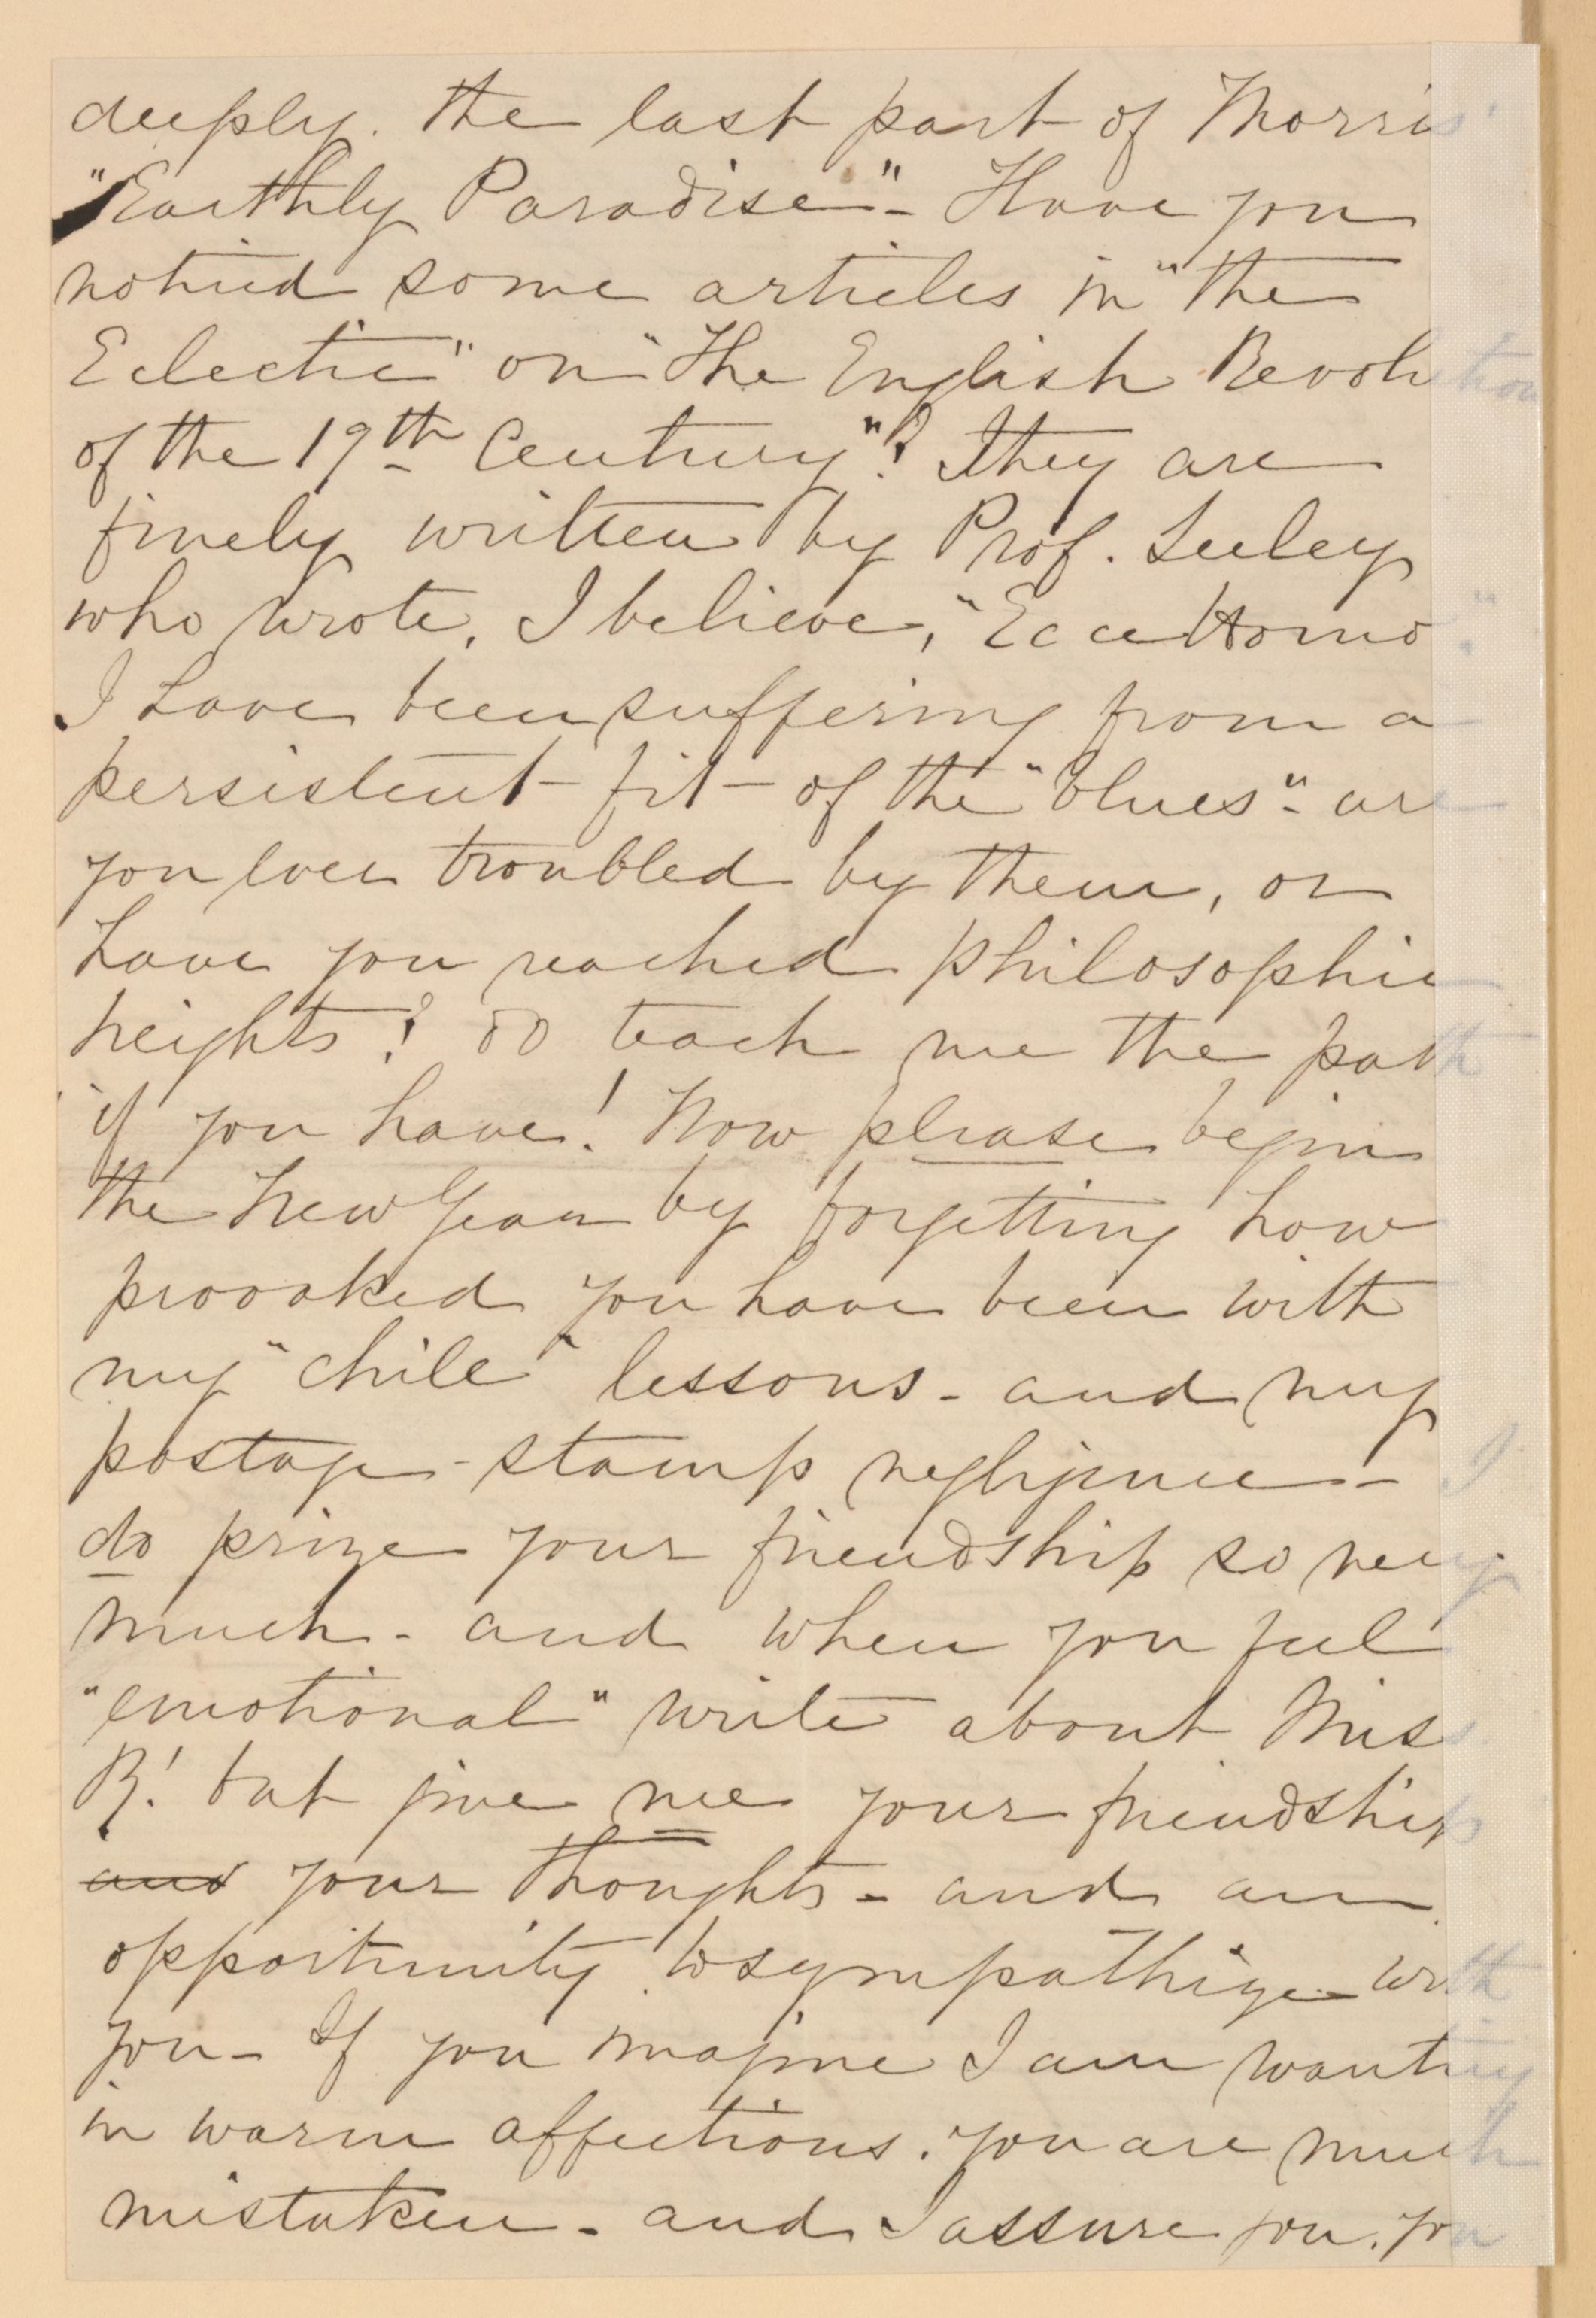 deeply. the last part of Morris'
"Earthly Paradise"- Have you
noticed some articles in "the
Eclectic" on "The English Revolution
of the 19th Century"? They are
finely written by Prof. Seeley
who wrote, I believe, "Ecce Homo".
I have been suffering from a
persistent fit of the "blues"- are
you ever troubled by them, or
have you reached philosophic
heights? Do teach me the path
if you have! Now please begin
the New Year by forgetting how
provoked you have been with
my "chile" lessons - and my
postage-stamp negligence - I
do prize your friendship so very
much - and when you feel
"emotional" write about Miss.
R! but give me your friendship
and your thoughts - and an
opportunity to sympathize with
you - If you imagine I am wanting
in warm affections. you are much
mistaken - and I assure you. you